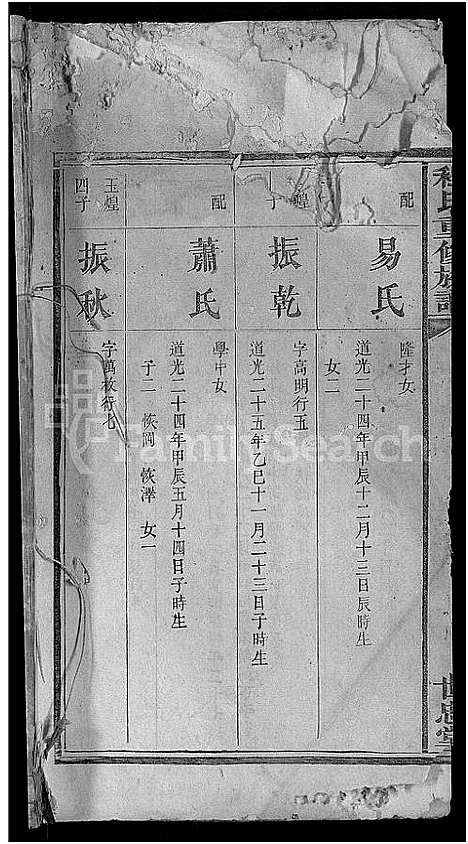 氏重修族譜
世忠堂
配
易氏
隆才女
道光二十四年甲辰十二月十三日辰時生
女二
子
振乾
字高明行五
道光二十五年乙巳十一月二十三日子時生
配
蕭氏
學中女
道光二十四年甲辰五月十四日子時生
子二 恢閭 恢澤 女一
玉煌
四子
振秋
字萬敉行七
FamilySearch